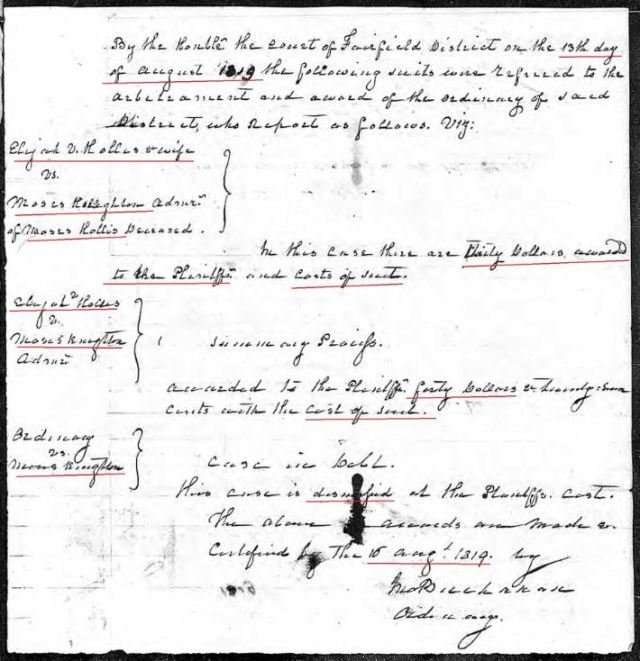 By the Honble the Court of Fairfield District on the 13th day
of August 1819 the following suits were referred to the
arbitrament and award of the ordinary of said
District, who Report as follows. Viz:
Elijah V. Hollis & wife
vs.
Moses Knighton Admr
of Moses Hollis Deceased.
In this case there are Dollars awarded
to the Plaintiff and Costs of suit.
Elijah Hollis
v.
Moses Knighton
Admr
Summary Process.
awarded to the Plaintiff forty Dollars & twenty seven
cents with the cost of suit.
Ordinary
vs.
Moses Knighton
Case in Debt.
this case is dismissed at the Plaintiffs cost.
The above awards are made &
Certified by the 16 Augt. 1819. by
Jno Buchanan
Ordinary.